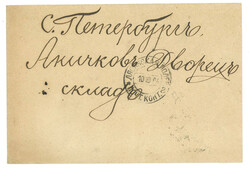 С. Петербургъ.
Аничковъ Дворецъ
складъ